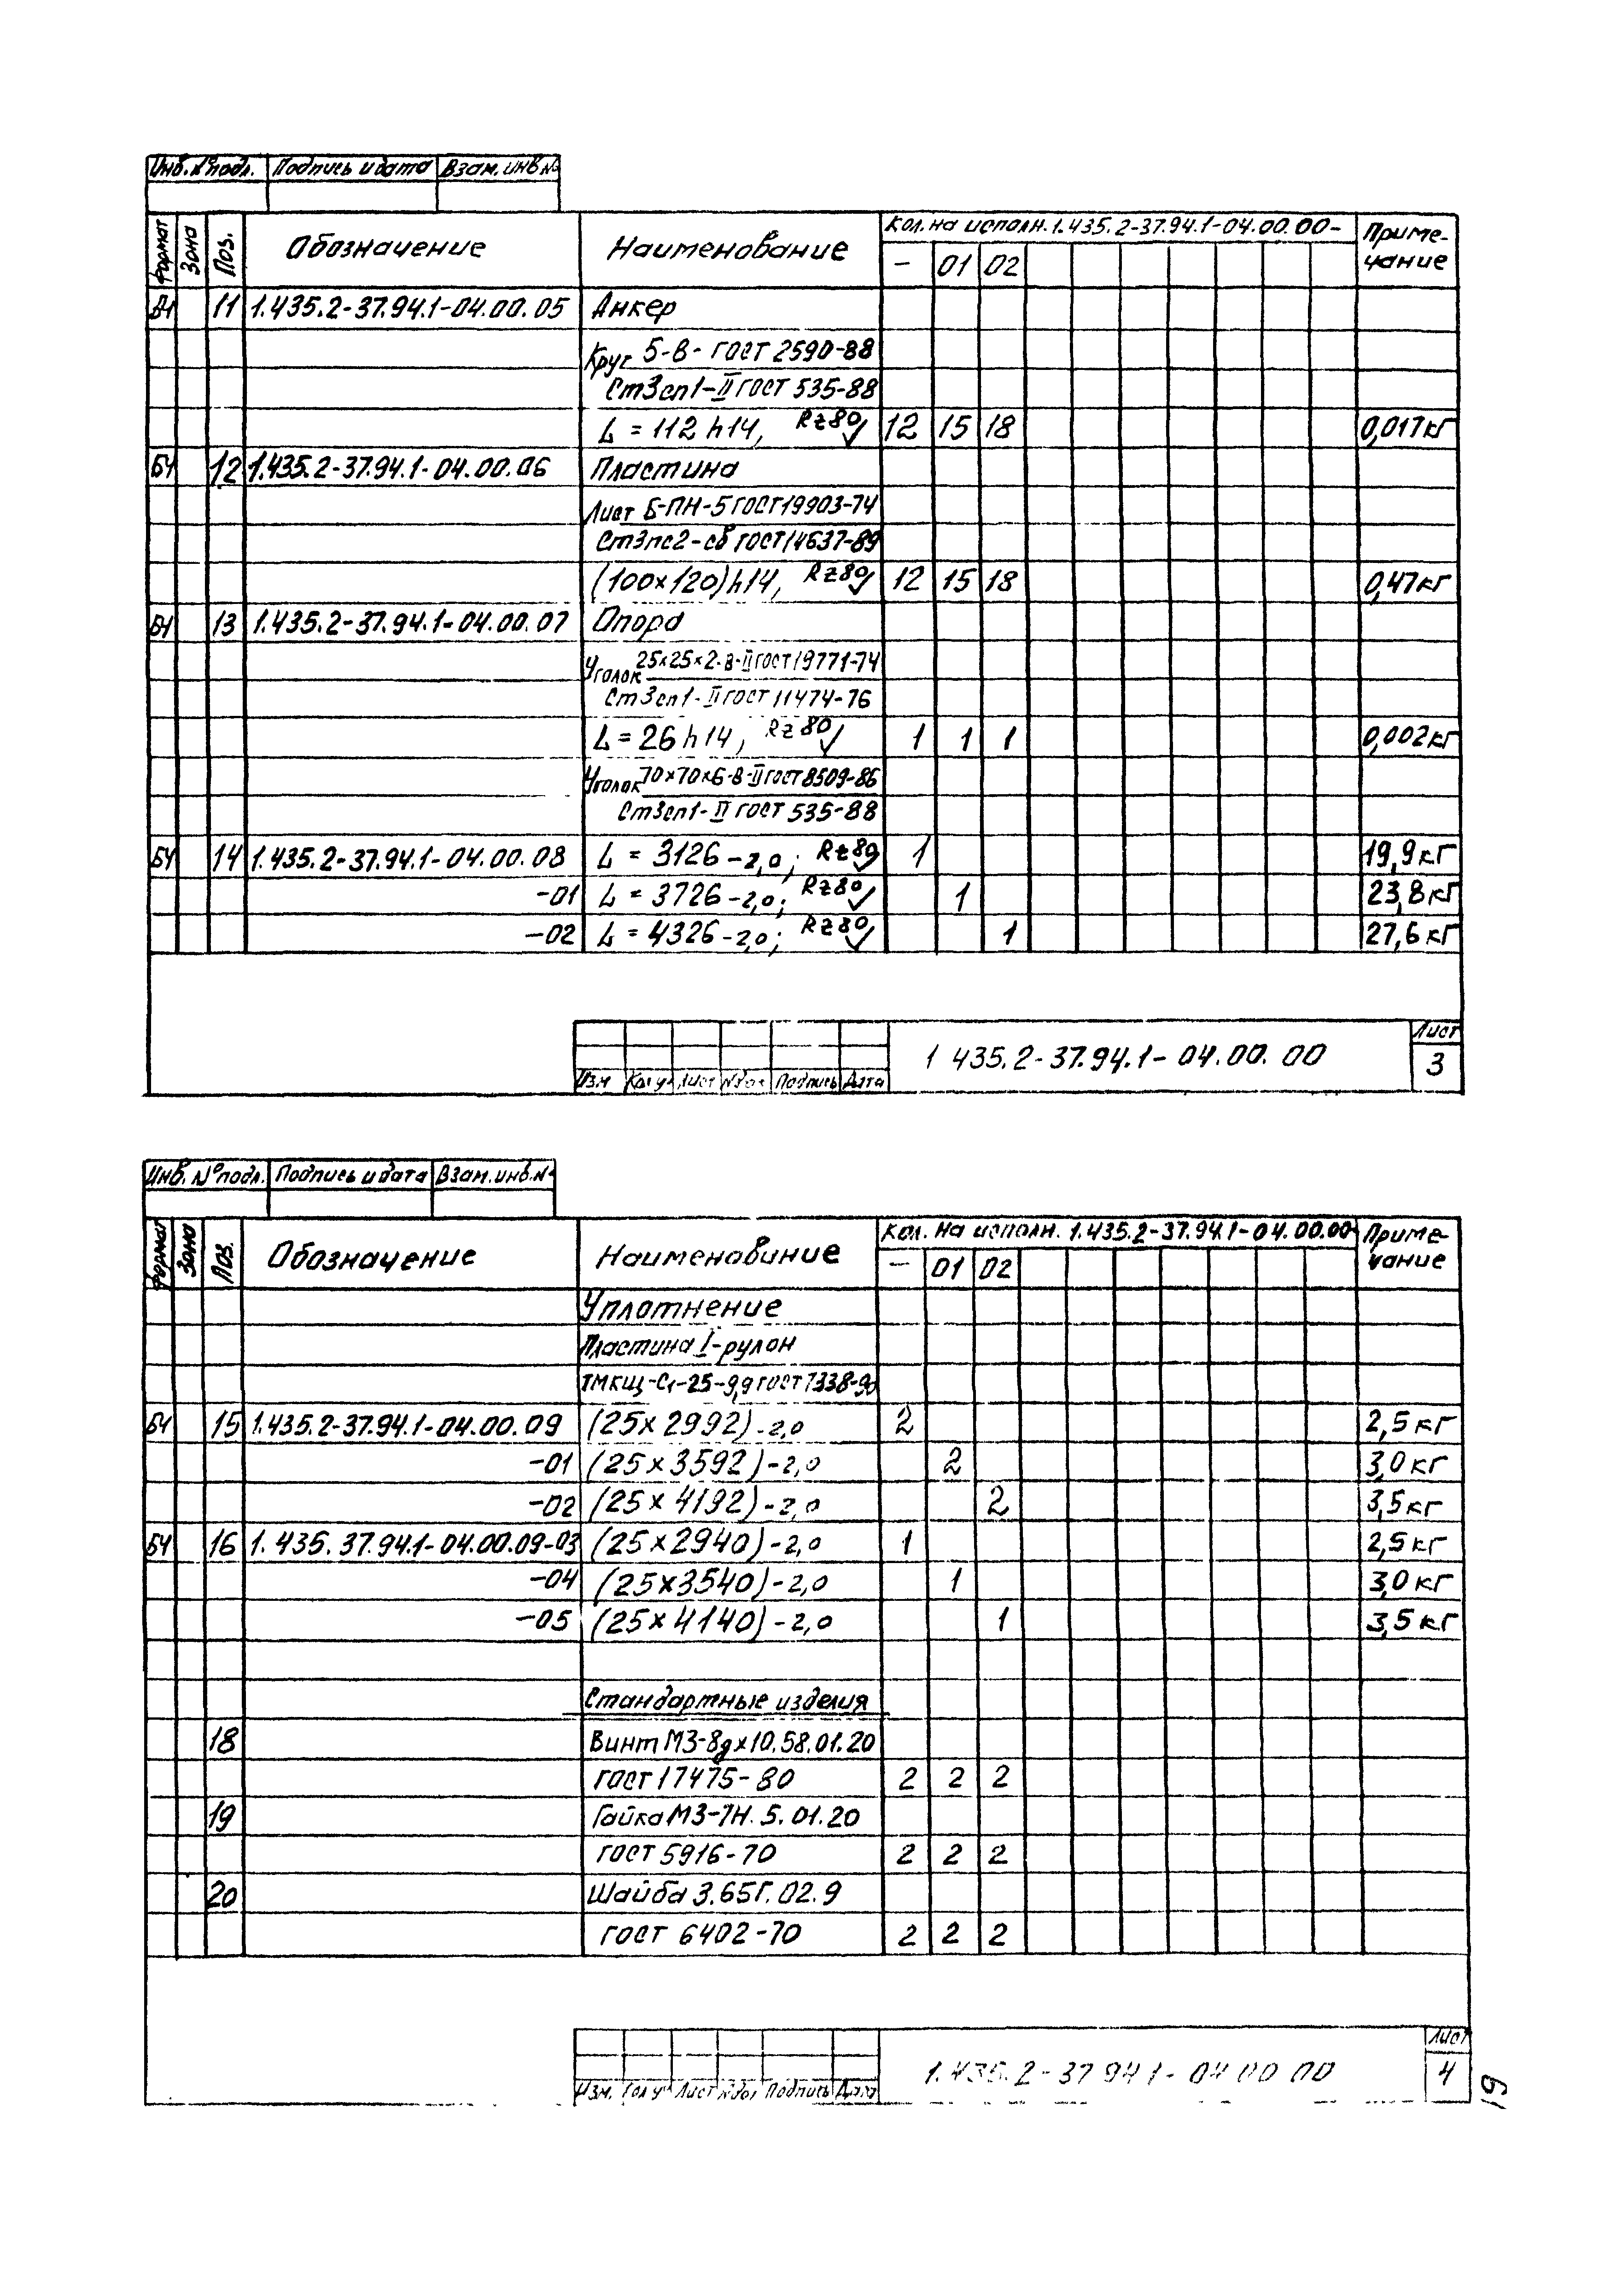 Инв. № подл. Подпись и дата Взам. инв №
Формат Зона Поз. Обозначение Наименование Кол. на исполн. 1.435.2-37.94.1-04.00.00- Приме-
чание
- 01 02
11 1.435.2-37.94.1-04.00.05 Анкер
Круг 5-В- ГОСТ 2590-88
Ст3сп1-II ГОСТ 535-88
L = 112 h14, Rz80 12 15 18 0,017кг
БЧ 12 1.435.2-37.94.1-04.00.06 Пластина
Лист Б-ПН-5 ГОСТ 19903-74
Ст3пс2-св ГОСТ 14637-89
(100х120)h14, Rz80 12 15 18 0,47кг
БЧ 13 1.435.2-37.94.1-04.00.07 Опора
Уголок 25х25х2-В-II ГОСТ 19771-74
Ст3сп1-II ГОСТ 11474-76
L = 26 h14, Rz80 1 1 1 0,002кг
Уголок 70х70х6-В-II ГОСТ 8509-86
Ст3сп1-II ГОСТ 535-88
БЧ 14 1.435.2-37.94.1-04.00.08 L = 3126 -2,0; Rz80 1 19,9кг
-01 L = 3726 -2,0; Rz80 1 23,8кг
-02 L = 4326 -2,0; Rz80 1 27,6кг
1 435.2-37.94.1-04.00.00 Лист
3
Изм Кол у Лист №док Подпись Дата
Инв. № подл. Подпись и дата Взам. инв. №
Формат Зона Поз. Обозначение Наименовиние Кол. на исполн. 1.435.2-37.94.1-04.00.00- Приме-
чание
- 01 02
Уплотнение
Пластина I-рулон
ТМКЩ-С1-25-9,9 ГОСТ 7338-90
БЧ 15 1.435.2-37.94.1-04.00.09 (25х2992)-2,0 2 2,5кг
-01 (25х3592)-2,0 2 3,0кг
-02 (25х4192)-2,0 2 3,5кг
БЧ 16 1.435.37.94.1-04.00.09-03 (25х2940)-2,0 1 2,5кг
-04 (25х3540)-2,0 1 3,0кг
-05 (25х4140)-2,0 1 3,5кг
Стандартные изделия
18 Винт М3-8gх10.58.01.20
ГОСТ 17475-80 2 2 2
19 Гайка М3-7Н.5.01.20
ГОСТ 5916-70 2 2 2
20 Шайба 3.65Г.02.9
ГОСТ 6402-70 2 2 2
1.435.2-37 94 1-04 00 00 Лист
4
Изм. Кол у Лист №док Подпись Дата